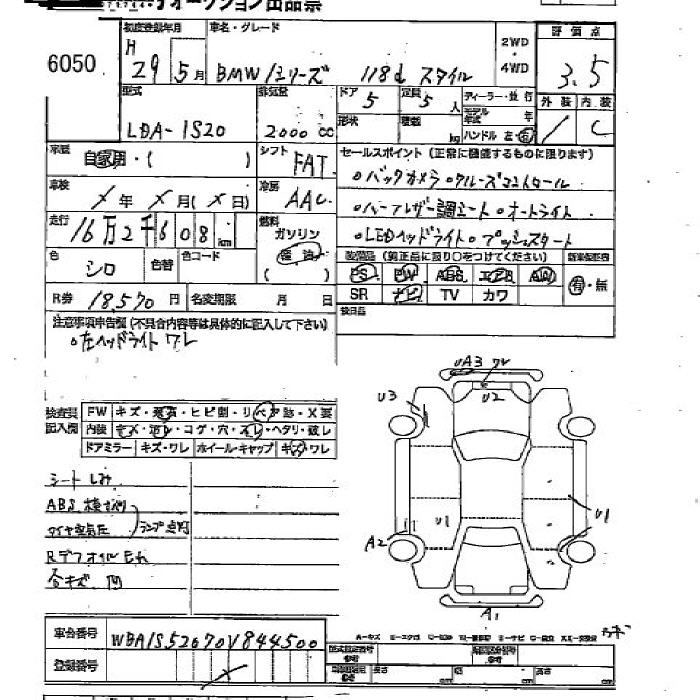 オークション出品票
6050
初度登録年月
H 29 5 月
車名・グレード
BMW 1シリーズ 118d スタイル
2WD
4WD
評価点
3.5
外装 内装
C
型式
LDA-1S20
排気量
2000 cc
ドア 5
定員 5 人
ディーラー・並行
モデル年式 年
形状
積載 kg
ハンドル 左・右
車歴
自家用・( )
シフト
FAT
セールスポイント(正常に機能するものに限ります)
。バックカメラ 。クルーズコントロール
車検
メ年 メ月(メ日)
冷房
AAC
。ハーフレザー調シート 。オートライト
走行
16万2千608 km
燃料
ガソリン
軽油
( )
。LEDヘッドライト 。プッシュスタート
色
シロ
色替
色コード
装備品(純正品に限り○をつけてください)
新車保証書
PS PW ABS エアB AW
有・無
SR ナビ TV カワ
R券 18,570 円
名変期限 月 日
後日品
注意事項申告欄(不具合内容等は具体的に記入して下さい)
。左ヘッドライト ワレ
UA3 ワレ
U2
U3
検査員記入欄
FW キズ・飛石・ヒビ割・リペア跡・X要
内装 キズ・汚レ・コゲ・穴・スレ・ヘタリ・破レ
ドアミラー キズ・ワレ ホイールキャップ キズ・ワレ
シートしみ
ABS 横すべり
タイヤ空気圧
ランプ点灯
Rデフオイルモレ
各キズ 凹
U1
U1
A2
A1
車台番号
WBA1S52070V844500
登録番号
A=キズ
長さ cm
幅 cm
高さ